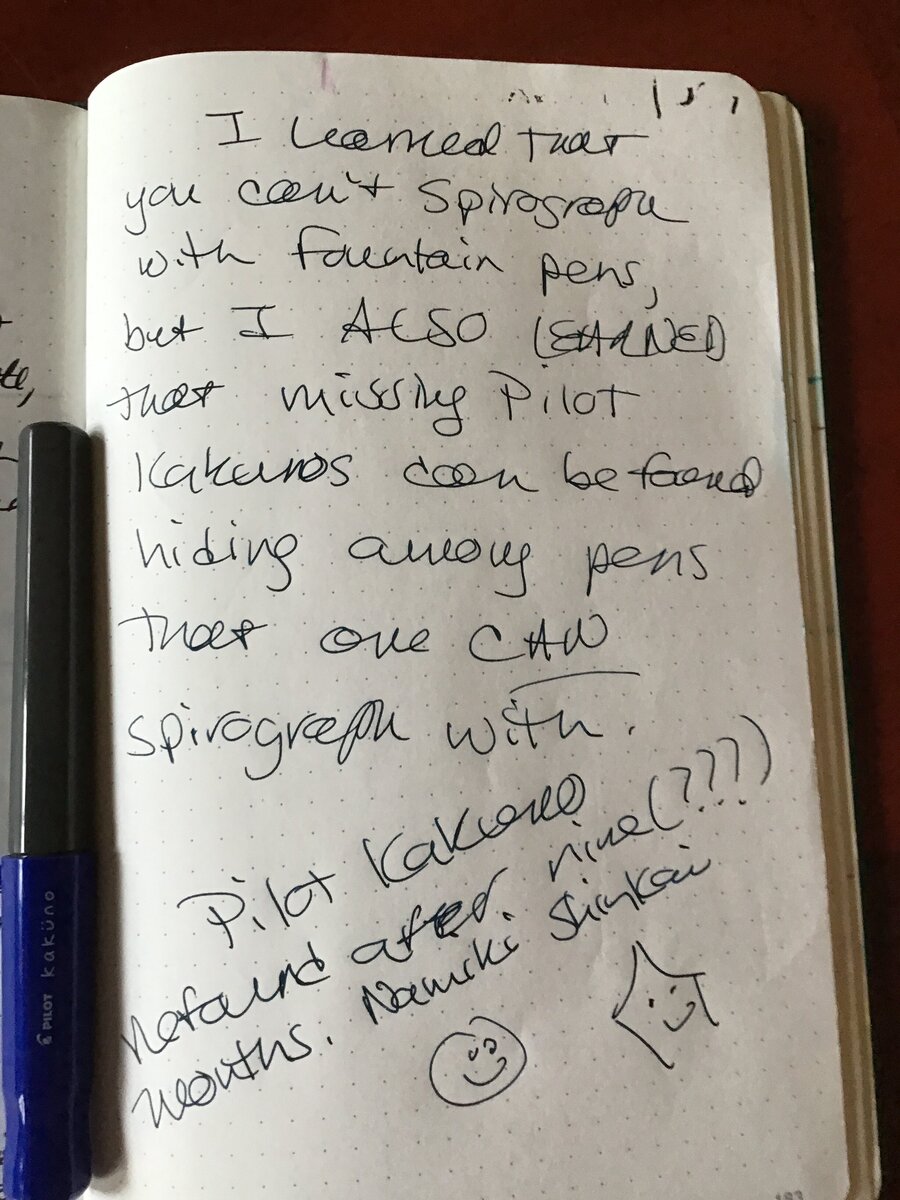 I learned that
you can't Spirograph
with fountain pens,
but I ALSO LEARNED
that missing Pilot
Kakunos can be found
hiding among pens
that one CAN
spirograph with.
Pilot Kakuno
refound after nine(???)
months. Namiki Shinkai
PILOT kaküno